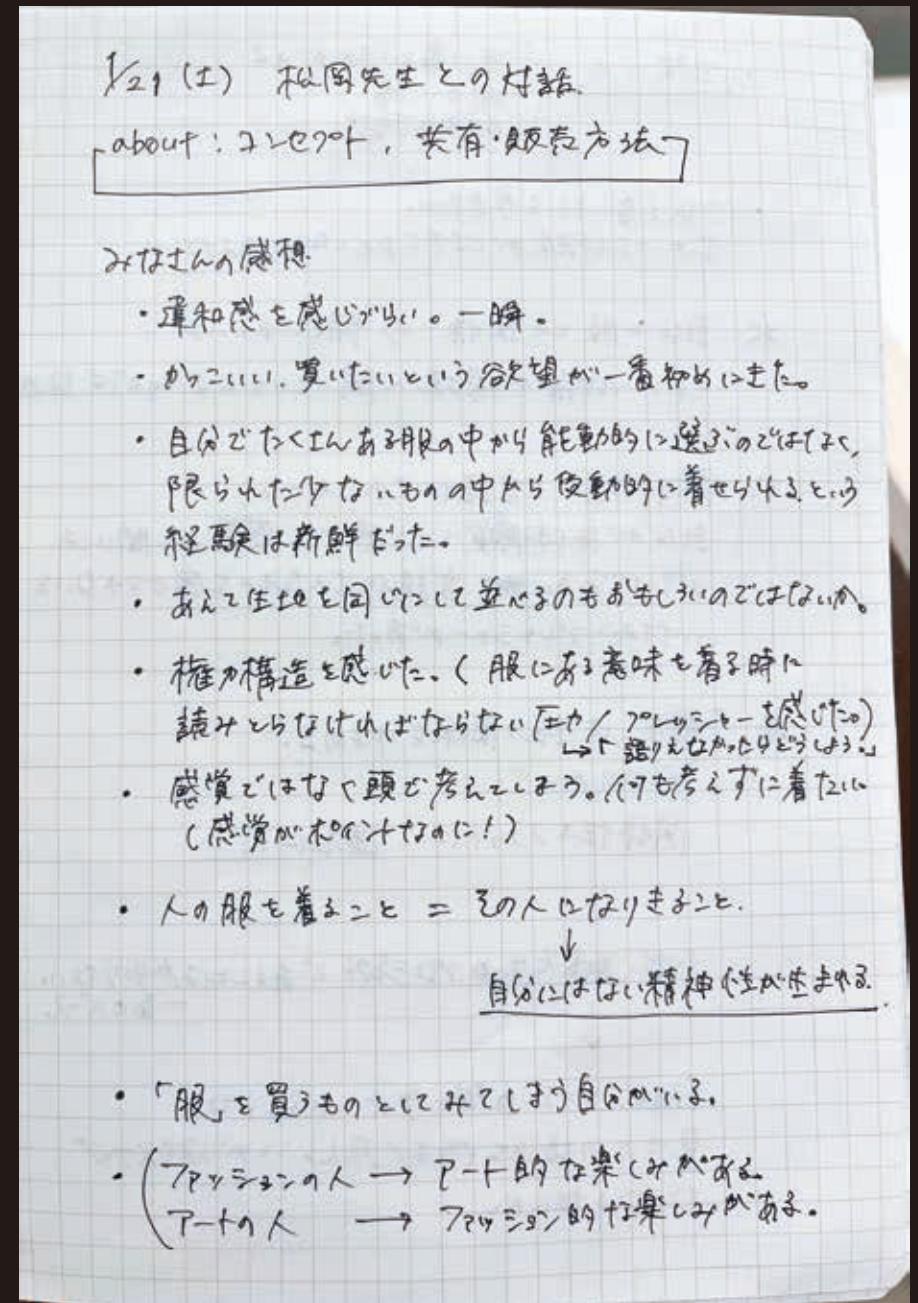 1/21(土) 松岡先生との対話.
about:コンセプト, 共有・販売方法
みなさんの感想
・違和感を感じづらい。一瞬。
・かっこいい、買いたいという欲望が一番初めにきた。
・自分でたくさんある服の中から能動的に選ぶのではなく、
限られた少ないものの中から受動的に着せられるという
経験は新鮮だった。
・あえて生地を同じにして並べるのもおもしろいのではないか。
・権力構造を感じた。(服にある意味を着る時に
読みとらなければならない圧力/プレッシャーを感じた。)
↳「語りえなかったらどうしよう。」
・感覚ではなく頭で考えてしまう。何も考えずに着たい。
(感覚がポイントなのに!)
・人の服を着ること = その人になりきること.
↓
自分にはない精神性が生まれる.
・「服」を買うものとしてみてしまう自分がいる。
・(ファッションの人 → アート的な楽しみがある。
アートの人 → ファッション的な楽しみがある。